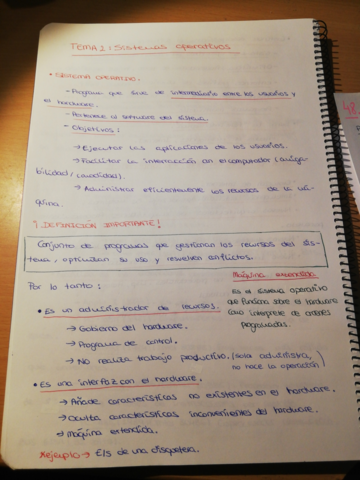 TEMA 2: Sistemas operativos
• SISTEMA OPERATIVO:
- Programa que sirve de intermediario entre los usuarios y
el hardware.
- Pertenece al software del sistema.
- Objetivos:
→ Ejecutar las aplicaciones de los usuarios.
→ Facilitar la interacción en el computador (amiga-
bilidad / comodidad).
→ Administrar eficientemente los recursos de la má-
quina.
¡ DEFINICIÓN IMPORTANTE!
Conjunto de programas que gestionan los recursos del sis-
tema, optimizan su uso y resuelven conflictos.
Por lo tanto:
• Es un administrador de recursos.
→ Gobierno del hardware.
→ Programa de control.
→ No realiza trabajo productivo. (solo administra,
no hace la operación)
Máquina extendida
Es el sistema operativo
que funciona sobre el hardware
como interprete de ordenes
programadas.
• Es una interfaz con el hardware.
→ Añade características no existentes en el hardware.
→ Oculta características inconvenientes del hardware.
→ Máquina extendida.
Ejemplo → E/S de una disquetera.
48